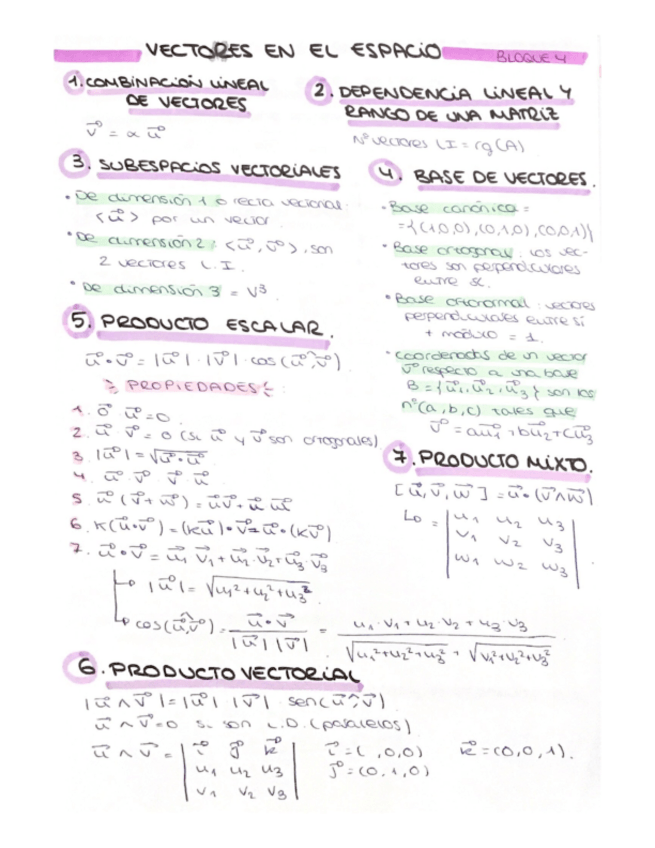 VECTORES EN EL ESPACIO
BLOQUE 4
1. COMBINACIÓN LINEAL
DE VECTORES
v⃗ = α u⃗
2. DEPENDENCIA LINEAL Y
RANGO DE UNA MATRIZ
Nº vectores LI = rg(A)
3. SUBESPACIOS VECTORIALES
• De dimensión 1 o recta vectorial:
<u⃗> por un vector.
• De dimensión 2: <u⃗, v⃗>, son
2 vectores L.I.
• De dimensión 3 = V³
4. BASE DE VECTORES.
• Base canónica =
={(1,0,0),(0,1,0),(0,0,1)}
• Base ortogonal: los vec-
tores son perpendiculares
entre sí.
• Base ortonormal: vectores
perpendiculares entre sí
+ módulo = 1.
• coordenadas de un vector
v⃗ respecto a una base
B = {u⃗1, u⃗2, u⃗3} son los
nº (a, b, c) tales que
v⃗ = au⃗1 + bu⃗2 + cu⃗3
5. PRODUCTO ESCALAR.
u⃗ • v⃗ = |u⃗| · |v⃗| · cos(u⃗^v⃗)
PROPIEDADES:
1. 0⃗ u⃗ = 0
2. u⃗ v⃗ = 0 (si u⃗ y v⃗ son ortogonales)
3. |u⃗| = √u⃗•u⃗
4. u⃗ · v⃗ v⃗ · u⃗
5 u⃗ (v⃗ + w⃗) = u⃗v⃗ + u⃗ w⃗
6. K(u⃗•v⃗) = (Ku⃗)•v⃗ = u⃗•(Kv⃗)
7. u⃗ • v⃗ = u⃗1 v⃗1 + u⃗2 · v⃗2 + u⃗3 · v⃗3
↳ |u⃗| = √u1² + u2² + u3²
↳ cos(u⃗,v⃗) = u⃗ • v⃗ / |u⃗| |v⃗| = u1 · v1 + u2 · v2 + u3 · v3 / √u1²+u2²+u3² + √v1²+v2²+v3²
7. PRODUCTO MIXTO.
[u⃗, v⃗, w⃗] = u⃗•(v⃗∧w⃗)
↳ = | u1 u2 u3 |
| v1 v2 v3 |
| w1 w2 w3 |
6. PRODUCTO VECTORIAL
|u⃗ ∧ v⃗| = |u⃗| |v⃗| sen(u⃗^v⃗)
u⃗ ∧ v⃗ = 0 si son L.D. (paralelos)
u⃗ ∧ v⃗ = | i⃗ j⃗ k⃗ | i⃗ = ( ,0,0) k⃗ = (0,0,1).
| u1 u2 u3 | j⃗ = (0,1,0)
| v1 v2 v3 |